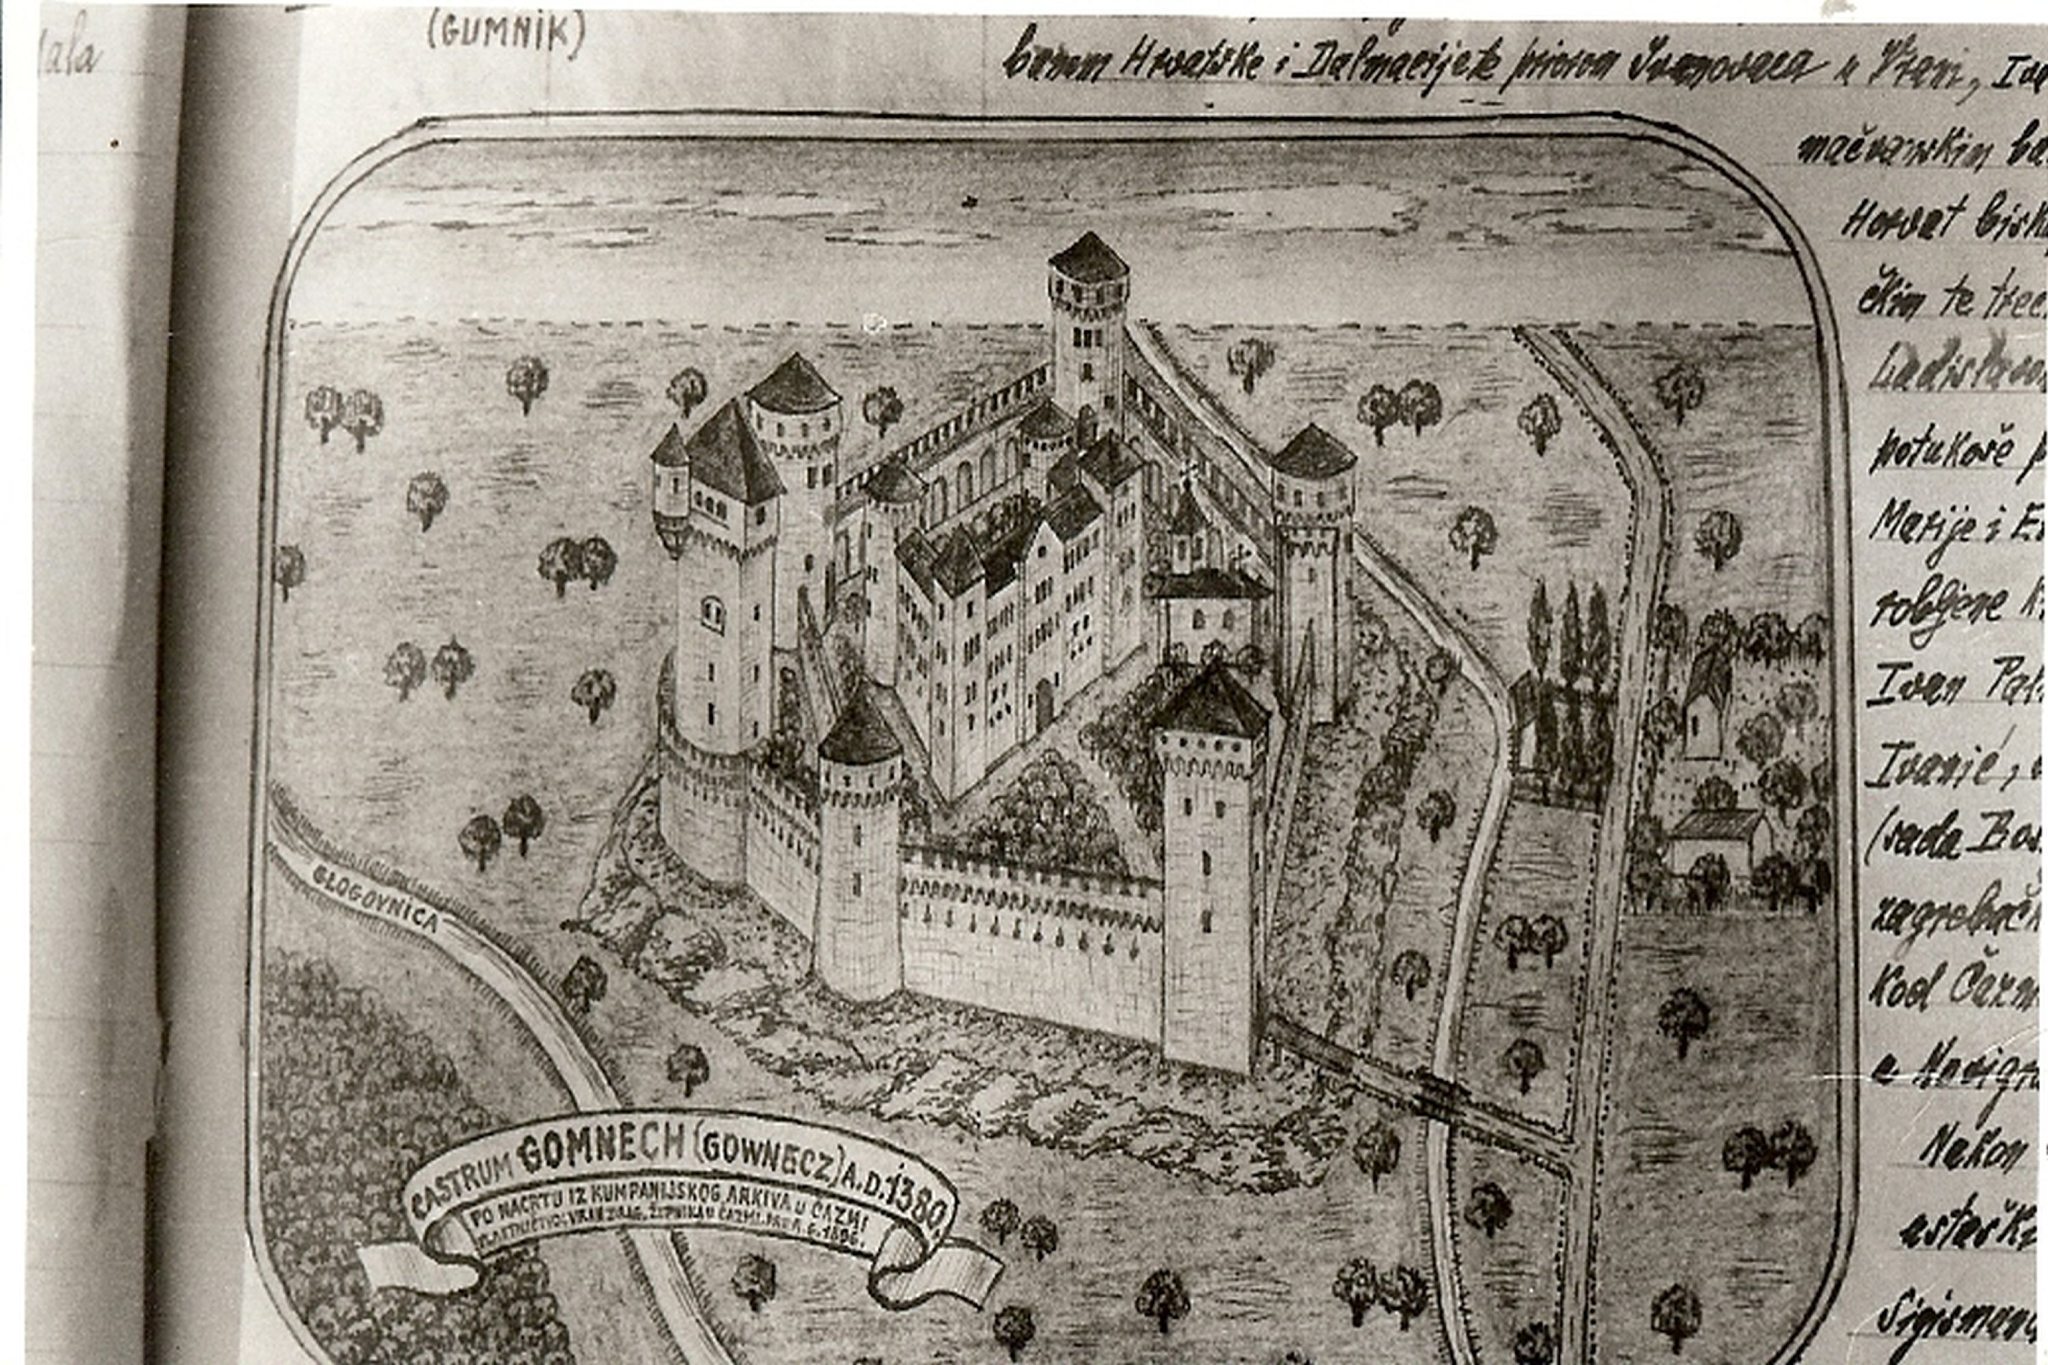 (GUMNIK)
banom Hrvatske i Dalmacije te priorom Ivanovaca u Vrani, Iva
mačvanskim ba
Horvat bisk
čkim te treć
Ladislavo
potukoše p
Marije i E
robljene k
Ivan Pal
Ivanić,
(sada Bos
zagrebačk
kod Čazm
u Novigra
Nakon
Sigismund
GLOGOVNICA
CASTRUM GOMNECH (GOWNECZ) A.D. 1380.
PO NACRTU IZ KUMPANIJSKOG ARKIVA U ČAZMI
ŽUPNIKA U ČAZMI